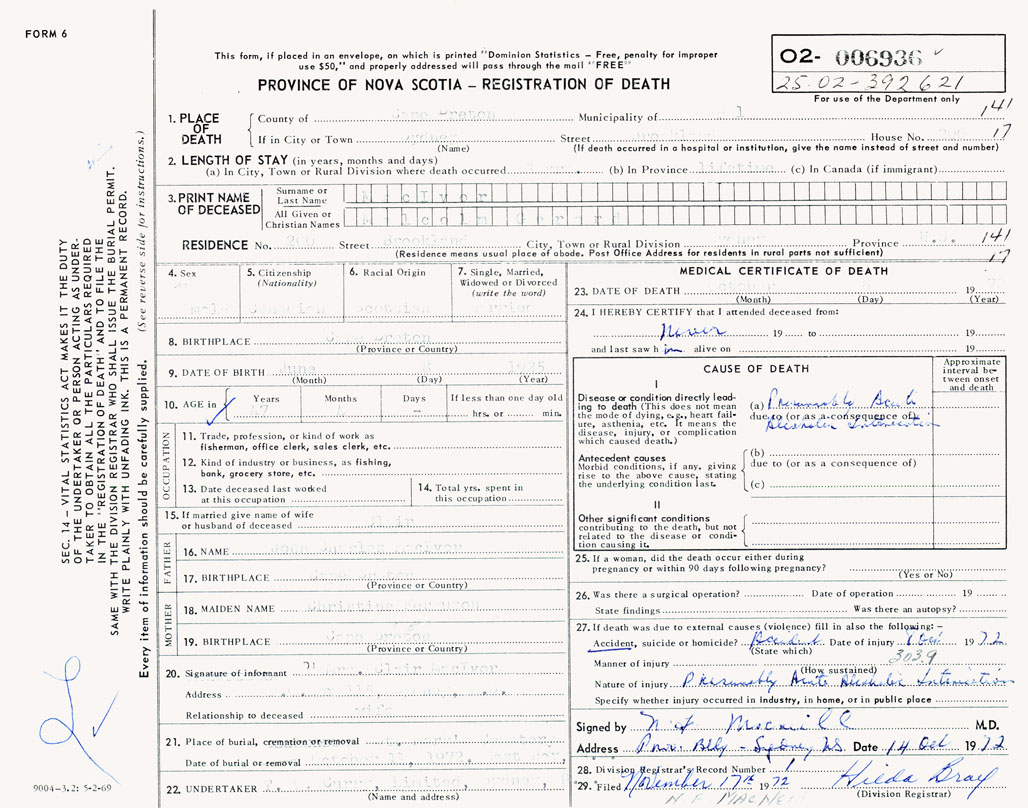 FORM 6
This form, if placed in an envelope, on which is printed "Dominion Statistics – Free, penalty for improper
use $50," and properly addressed will pass through the mail "FREE"
PROVINCE OF NOVA SCOTIA – REGISTRATION OF DEATH
02- 006936
25.02-392621
For use of the Department only
141
17
1. PLACE OF DEATH
County of Cape Breton Municipality of 1
If in City or Town Sydney Street Brookland House No. 200
(Name) (If death occurred in a hospital or institution, give the name instead of street and number)
2. LENGTH OF STAY (in years, months and days)
(a) In City, Town or Rural Division where death occurred (b) In Province lifetime (c) In Canada (if immigrant)
3. PRINT NAME OF DECEASED
Surname or Last Name MacIvor
All Given or Christian Names Malcolm Gerard
RESIDENCE No. 200 Street Brookland City, Town or Rural Division Province N.S. 141
(Residence means usual place of abode. Post Office Address for residents in rural parts not sufficient) 17
4. Sex male
5. Citizenship (Nationality) Canadian
6. Racial Origin Scotsian
7. Single, Married, Widowed or Divorced (write the word) married
8. BIRTHPLACE Cape Breton
(Province or Country)
9. DATE OF BIRTH June 8 1925
(Month) (Day) (Year)
10. AGE in Years 47 Months Days – If less than one day old hrs. or min.
OCCUPATION
11. Trade, profession, or kind of work as
fisherman, office clerk, sales clerk, etc.
12. Kind of industry or business, as fishing,
bank, grocery store, etc.
13. Date deceased last worked
at this occupation
14. Total yrs. spent in
this occupation
15. If married give name of wife
or husband of deceased Clair
FATHER
16. NAME John Charles MacIvor
17. BIRTHPLACE Cape Breton
(Province or Country)
MOTHER
18. MAIDEN NAME Christine
19. BIRTHPLACE Cape Breton
(Province or Country)
20. Signature of informant Clair MacIvor
Address
Relationship to deceased wife
21. Place of burial, cremation or removal
Date of burial or removal October 1972
22. UNDERTAKER Curry Limited Sydney,
(Name and address)
MEDICAL CERTIFICATE OF DEATH
23. DATE OF DEATH October 19
(Month) (Day) (Year)
24. I HEREBY CERTIFY that I attended deceased from:
Never 19 to 19
and last saw him alive on 19
CAUSE OF DEATH
Approximate interval between onset and death
I
Disease or condition directly leading to death (This does not mean the mode of dying, e.g., heart failure, asthenia, etc. It means the disease, injury, or complication which caused death.)
(a) Presumably Acute
due to (or as a consequence of)
Alcoholic Intoxication
Antecedent causes
Morbid conditions, if any, giving rise to the above cause, stating the underlying condition last.
(b)
due to (or as a consequence of)
(c)
II
Other significant conditions
contributing to the death, but not related to the disease or condition causing it.
25. If a woman, did the death occur either during
pregnancy or within 90 days following pregnancy?
(Yes or No)
26. Was there a surgical operation? Date of operation 19
State findings Was there an autopsy?
27. If death was due to external causes (violence) fill in also the following: –
Accident, suicide or homicide? Accident Date of injury 1972
(State which) 3039
Manner of injury
(How sustained)
Nature of injury Presumably Acute Alcoholic Intoxication
Specify whether injury occurred in industry, in home, or in public place
Signed by M.D.
Address Sydney NS Date 14 Oct 1972
28. Division Registrar's Record Number 1
29. Filed November 17th 1972 Hilda Bray
(Division Registrar)
N F MacNeil
SEC. 14 – VITAL STATISTICS ACT MAKES IT THE DUTY
OF THE UNDERTAKER OR PERSON ACTING AS UNDER-
TAKER TO OBTAIN ALL THE PARTICULARS REQUIRED
IN THE "REGISTRATION OF DEATH" AND TO FILE THE
SAME WITH THE DIVISION REGISTRAR WHO SHALL ISSUE THE BURIAL PERMIT.
WRITE PLAINLY WITH UNFADING INK. THIS IS A PERMANENT RECORD.
Every item of information should be carefully supplied. (See reverse side for instructions.)
9004-3.2: 5-2-69